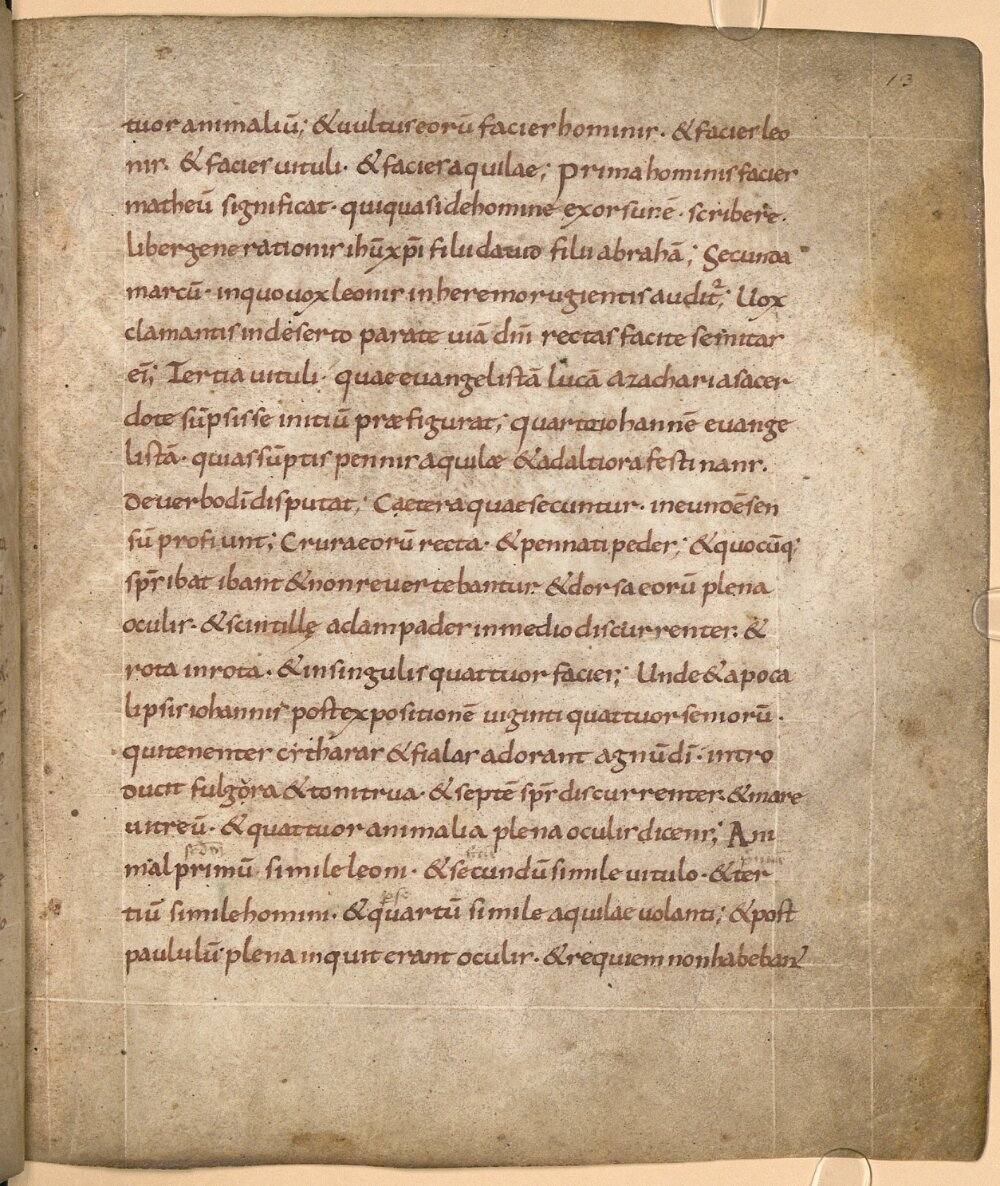 13
tuor animaliū; & uultus eorū facies hominis. & facies leo
nis. & facies uituli. & facies aquilae; Prima hominis facies
matheū significat. qui quasi de homine exorsus ē. scribere.
liber generationis ihū xp̄i filii dauid filii abrahā; Secunda
marcū. in quo uox leonis in heremo rugientis auditᷣ; Uox
clamantis in deserto parate uiā dn̄i rectas facite semitas
ei'; Tertia uituli. quae euangelistā lucā a zacharia sacer
dote sūpsisse initiū praefigurat; quarta iohannē euange
listā. qui assūptis pennis aquilæ & ad altiora festinans.
de uerbo dī disputat; Caetera quae secuntur. in eundē sen
sū profiunt; Crura eorū recta. & pennati pedes; & quocūq;
sp̄s ibat ibant & non reuertebantur. & dorsa eorū plena
oculis. & scintillę ac lampades in medio discurrentes. &
rota in rota. & in singulis quattuor facies; Unde & apoca
lipsis iohannis post expositionē uiginti quattuor seniorū.
qui tenentes cytharas & fialas adorant agnū dī. intro
ducit fulgora & tonitrua. & septē sp̄s discurrentes. & mare
uitreū. & quattuor animalia plena oculis dicens; Ani
mal primū simile leoni. & secundū simile uitulo. & ter
tiū simile homini. & quartū simile aquilae uolanti; & post
paululū plena inquit erant oculis. & requiem non habebant